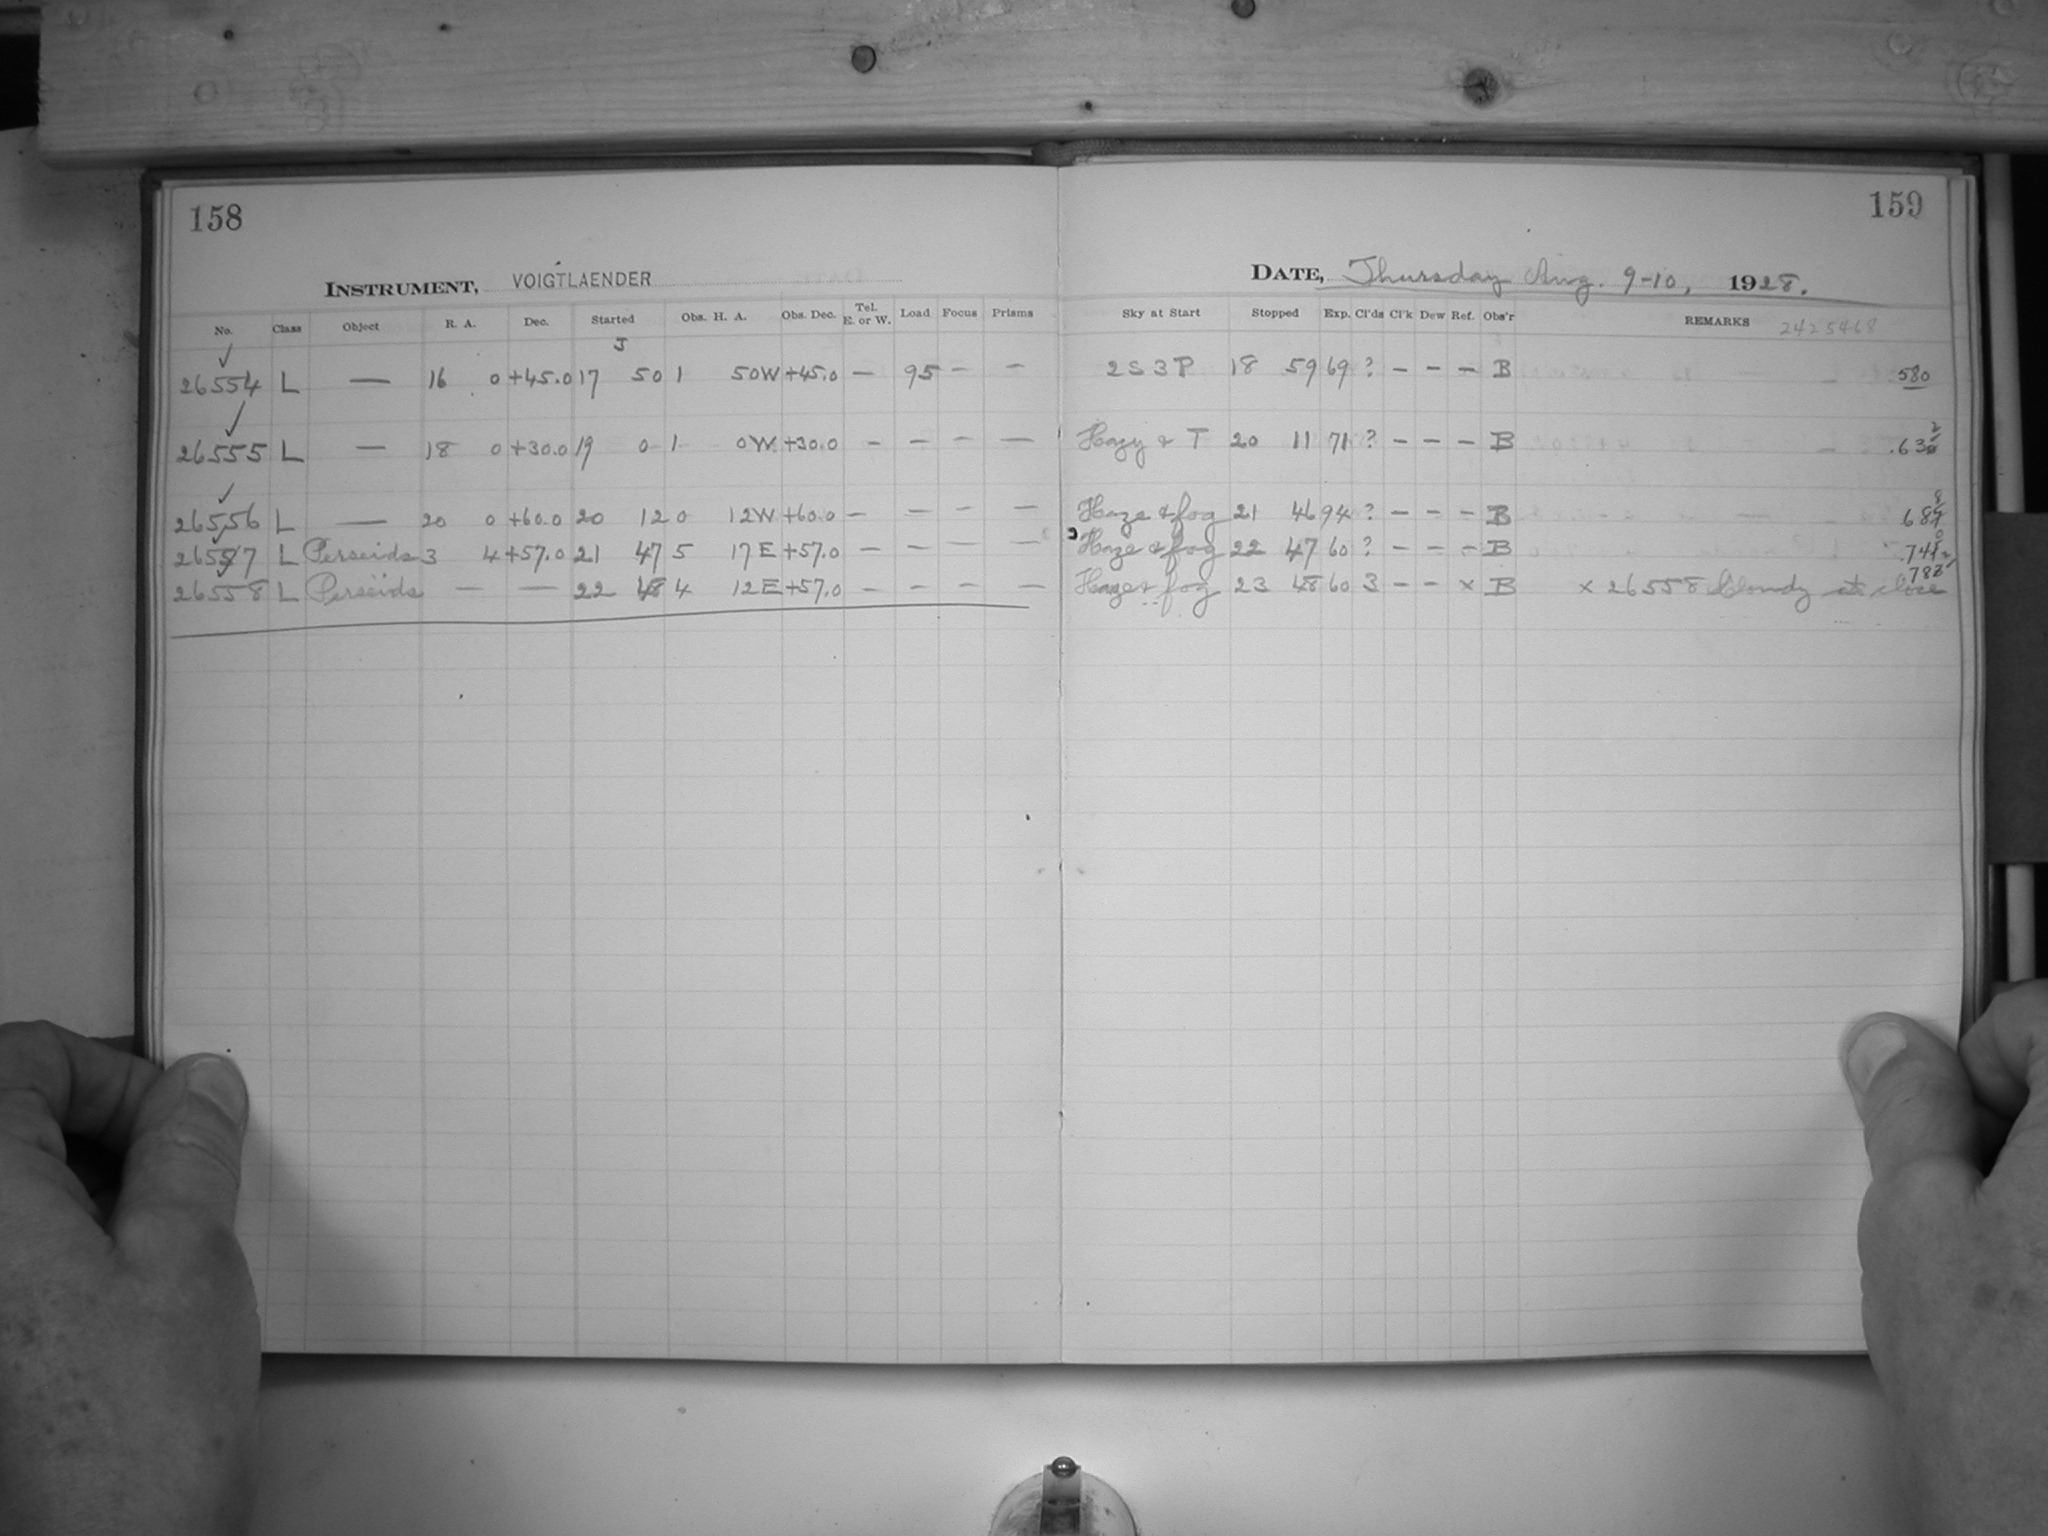 158
159
INSTRUMENT, VOIGTLAENDER
DATE, Thursday Aug. 9-10, 1928.
No. Class Object R. A. Dec. Started Obs. H. A. Obs. Dec. Tel. E. or W. Load Focus Prisms Sky at Start Stopped Exp. Cl'ds Cl'k Dew Ref. Obs'r REMARKS 2425468
J
26554 L — 16 0 +45.0 17 50 1 50W +45.0 — 95 — — 2S3P 18 59 69 ? — — — B .580
26555 L — 18 0 +30.0 19 0 1 0W +30.0 — — — — Hazy & T 20 11 71 ? — — — B .632
26556 L — 20 0 +60.0 20 12 0 12W +60.0 — — — — Haze & fog 21 46 94 ? — — — B .688
26557 L Perseids 3 4 +57.0 21 47 5 17E +57.0 — — — — Haze & fog 22 47 60 ? — — — B .740
26558 L Perseids — — 22 48 4 12E +57.0 — — — — Haze & fog 23 48 60 3 — — x B x 26558 Cloudy at close .782